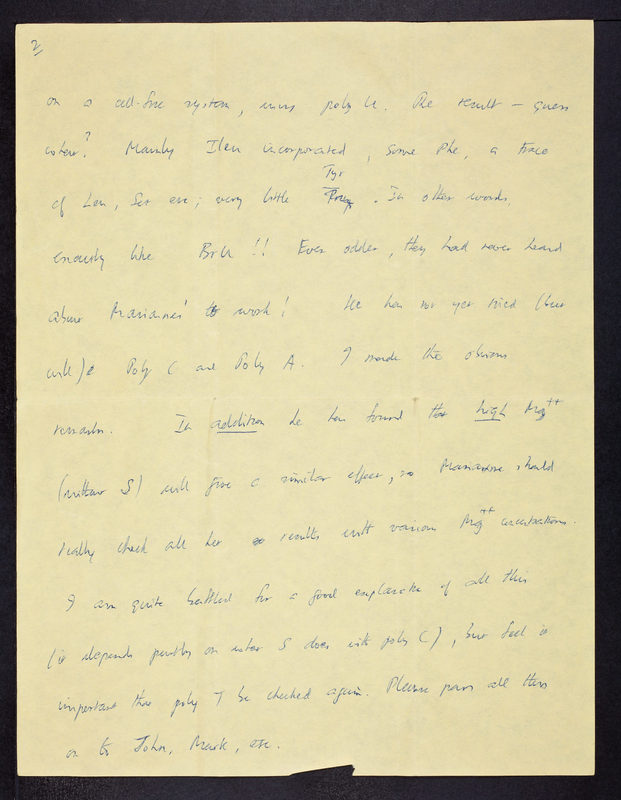 2/
on a cell-free system, using poly U. The result — guess
what? Mainly Ileu incorporated, some Phe, a trace
of Leu, Ser etc; very little Tyr. In other words,
exactly like BrU!! Even odder, they had never heard
about Marianne's work! He has not yet tried (but
will) Poly C and Poly A. I made the obvious
remarks. In addition he has found that high Mg++
(without S) will give a similar effect, so Marianne should
really check all her results with various Mg++ concentrations.
I am quite baffled for a good explanation of all this
(it depends partly on what S does with poly C), but feel it
important that poly T be checked again. Please pass all this
on to John, Mark, etc.